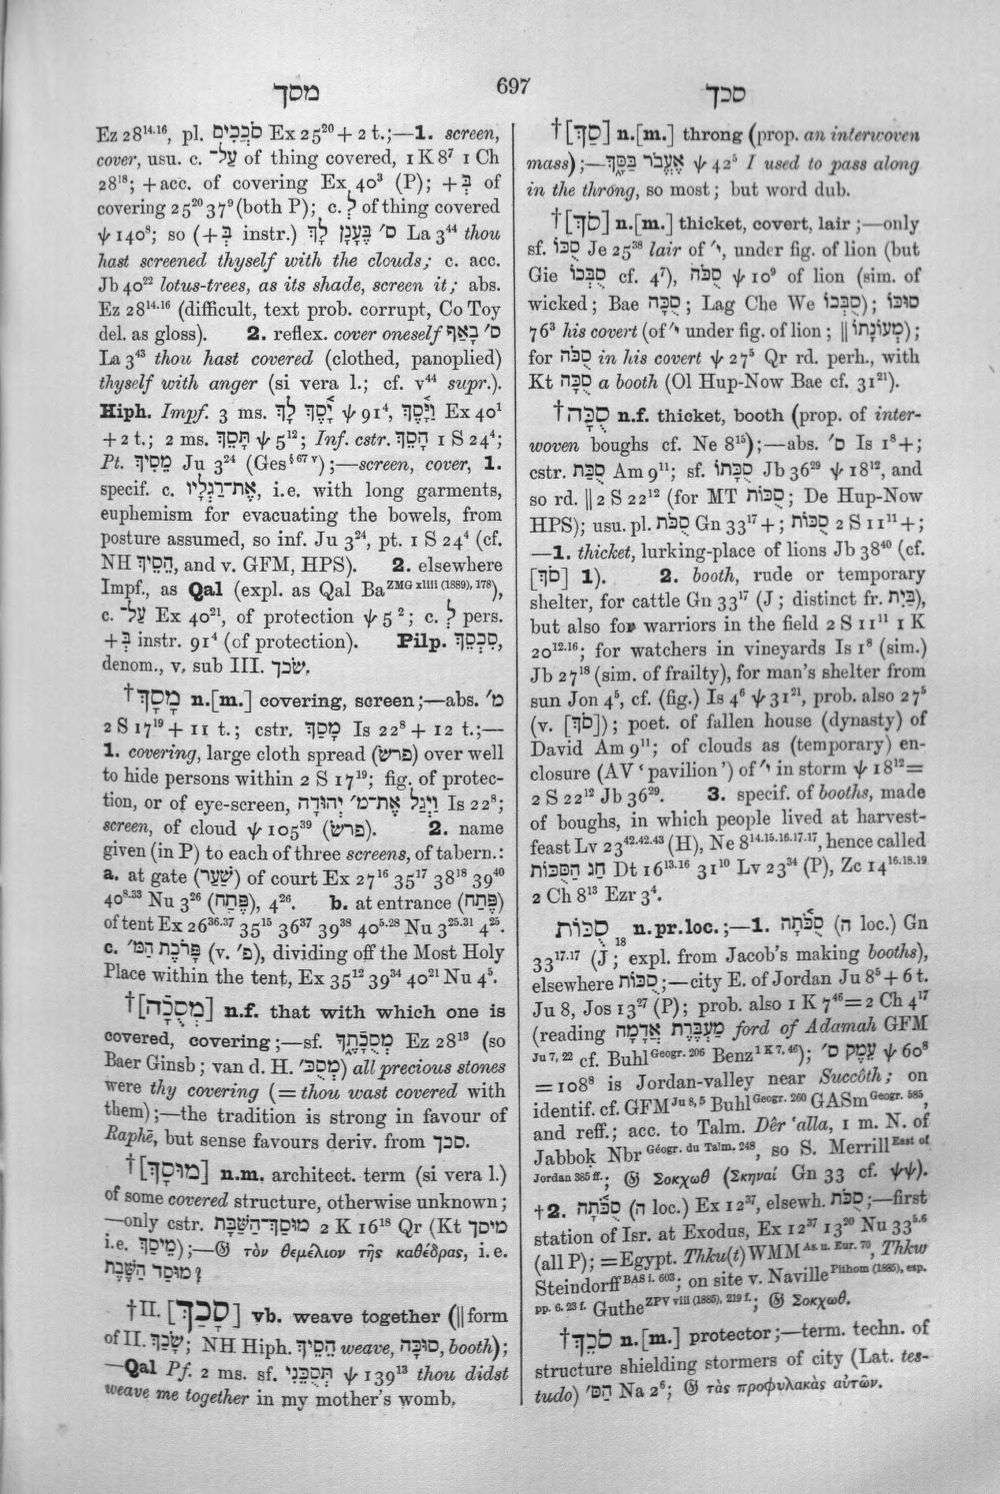 מסך
697
סכך
Ez 28¹⁴·¹⁶, pl. סֹכְכִים Ex 25²⁰ + 2 t.;—1. screen,
cover, usu. c. עַל־ of thing covered, 1 K 8⁷ 1 Ch
28¹⁸; + acc. of covering Ex 40³ (P); + בְּ of
covering 25²⁰ 37⁹ (both P); c. לְ of thing covered
ψ 140⁸; so (+ בְּ instr.) ס׳ בֶּעָנָן לָךְ La 3⁴⁴ thou
hast screened thyself with the clouds; c. acc.
Jb 40²² lotus-trees, as its shade, screen it; abs.
Ez 28¹⁴·¹⁶ (difficult, text prob. corrupt, Co Toy
del. as gloss). 2. reflex. cover oneself ס׳ בָאַף
La 3⁴³ thou hast covered (clothed, panoplied)
thyself with anger (si vera l.; cf. v⁴⁴ supr.).
Hiph. Impf. 3 ms. יָסֶךְ לָךְ ψ 91⁴, וַיָּסֶךְ Ex 40¹
+ 2 t.; 2 ms. תָּסֵךְ ψ 5¹²; Inf. cstr. הָסֵךְ 1 S 24⁴;
Pt. מֵסִיךְ Ju 3²⁴ (Ges§ 67 v);—screen, cover, 1.
specif. c. אֶת־רַגְלָיו, i.e. with long garments,
euphemism for evacuating the bowels, from
posture assumed, so inf. Ju 3²⁴, pt. 1 S 24⁴ (cf.
NH הֵסִיךְ, and v. GFM, HPS). 2. elsewhere
Impf., as Qal (expl. as Qal Ba ZMG xliii (1889), 178),
c. עַל־ Ex 40²¹, of protection ψ 5²; c. לְ pers.
+ בְּ instr. 91⁴ (of protection). Pilp. סִכְסֵךְ,
denom., v. sub III. שׂכך.
†מָסָךְ n.[m.] covering, screen;—abs. מ׳
2 S 17¹⁹ + 11 t.; cstr. מָסַךְ Is 22⁸ + 12 t.;—
1. covering, large cloth spread (פרשׂ) over well
to hide persons within 2 S 17¹⁹; fig. of protec-
tion, or of eye-screen, וַיְגַל אֶת־מ׳ יְהוּדָה Is 22⁸;
screen, of cloud ψ 105³⁹ (פרשׂ). 2. name
given (in P) to each of three screens, of tabern.:
a. at gate (שַׁעַר) of court Ex 27¹⁶ 35¹⁷ 38¹⁸ 39⁴⁰
40⁸·³³ Nu 3²⁶ (פֶּתַח), 4²⁶. b. at entrance (פֶּתַח)
of tent Ex 26³⁶·³⁷ 35¹⁵ 36³⁷ 39³⁸ 40⁵·²⁸ Nu 3²⁵·³¹ 4²⁵.
c. פָּרֹכֶת הַמּ׳ (v. פ׳), dividing off the Most Holy
Place within the tent, Ex 35¹² 39³⁴ 40²¹ Nu 4⁵.
†[מְסֻכָּה] n.f. that with which one is
covered, covering;—sf. מְסֻכָתֶךָ Ez 28¹³ (so
Baer Ginsb; van d. H. מְסֻכּ׳) all precious stones
were thy covering (= thou wast covered with
them);—the tradition is strong in favour of
Raphê, but sense favours deriv. from סכך.
†[מוּסָךְ] n.m. architect. term (si vera l.)
of some covered structure, otherwise unknown;
—only cstr. מוּסַךְ־הַשַּׁבָּת 2 K 16¹⁸ Qr (Kt מיסך
i.e. מֵיסַךְ);—𝔊 τὸν θεμέλιον τῆς καθέδρας, i.e.
מוּסַד הַשֶּׁבֶת?
†II. [סָכַךְ] vb. weave together (|| form
of II. שָׂכַךְ; NH Hiph. הֵסִיךְ weave, סוּכָּה, booth);
—Qal Pf. 2 ms. sf. תְּסֻכֵּנִי ψ 139¹³ thou didst
weave me together in my mother's womb.
†[סָךְ] n.[m.] throng (prop. an interwoven
mass);—אֶעֱבֹר בַּסָּךְ ψ 42⁵ I used to pass along
in the throng, so most; but word dub.
†[סֹךְ] n.[m.] thicket, covert, lair;—only
sf. סֻכּוֹ Je 25³⁸ lair of י׳, under fig. of lion (but
Gie סֻבְּכוֹ cf. 4⁷), סֻכֹּה ψ 10⁹ of lion (sim. of
wicked; Bae סֻכָּה; Lag Che We סֻבְּכוֹ); סוּכּוֹ
76³ his covert (of י׳ under fig. of lion; || מְעוֹנָתוֹ);
for סֻכֹּה in his covert ψ 27⁵ Qr rd. perh., with
Kt סֻכָּה a booth (Ol Hup-Now Bae cf. 31²¹).
†סֻכָּה n.f. thicket, booth (prop. of inter-
woven boughs cf. Ne 8¹⁵);—abs. ס׳ Is 1⁸ +;
cstr. סֻכַּת Am 9¹¹; sf. סֻכָּתוֹ Jb 36²⁹ ψ 18¹², and
so rd. || 2 S 22¹² (for MT סֻכּוֹת; De Hup-Now
HPS); usu. pl. סֻכֹּת Gn 33¹⁷ +; סֻכּוֹת 2 S 11¹¹ +;
—1. thicket, lurking-place of lions Jb 38⁴⁰ (cf.
[סֹךְ] 1). 2. booth, rude or temporary
shelter, for cattle Gn 33¹⁷ (J; distinct fr. בַּיִת),
but also for warriors in the field 2 S 11¹¹ 1 K
20¹²·¹⁶; for watchers in vineyards Is 1⁸ (sim.)
Jb 27¹⁸ (sim. of frailty), for man's shelter from
sun Jon 4⁵, cf. (fig.) Is 4⁶ ψ 31²¹, prob. also 27⁵
(v. [סֹךְ]); poet. of fallen house (dynasty) of
David Am 9¹¹; of clouds as (temporary) en-
closure (AV 'pavilion') of י׳ in storm ψ 18¹² =
2 S 22¹² Jb 36²⁹. 3. specif. of booths, made
of boughs, in which people lived at harvest-
feast Lv 23⁴²·⁴²·⁴³ (H), Ne 8¹⁴·¹⁵·¹⁶·¹⁷·¹⁷, hence called
חַג הַסֻּכּוֹת Dt 16¹³·¹⁶ 31¹⁰ Lv 23³⁴ (P), Zc 14¹⁶·¹⁸·¹⁹
2 Ch 8¹³ Ezr 3⁴.
סֻכּוֹת₁₈ n.pr.loc.;—1. סֻכֹּתָה (ה loc.) Gn
33¹⁷·¹⁷ (J; expl. from Jacob's making booths),
elsewhere סֻכּוֹת;—city E. of Jordan Ju 8⁵ + 6 t.
Ju 8, Jos 13²⁷ (P); prob. also 1 K 7⁴⁶ = 2 Ch 4¹⁷
(reading מַעְבֶּרֶת אֲדָמָה ford of Adamah GFM
Ju 7, 22 cf. Buhl Geogr. 206 Benz 1 K 7, 46); עֵמֶק ס׳ ψ 60⁸
= 108⁸ is Jordan-valley near Succôth; on
identif. cf. GFM Ju 8, 5 Buhl Geogr. 260 GASm Geogr. 585,
and reff.; acc. to Talm. Dêr 'alla, 1 m. N. of
Jabbok Nbr Géogr. du Talm. 248, so S. Merrill East of
Jordan 385 ff.; 𝔊 Σοκχωθ (Σκηναί Gn 33 cf. ψψ).
†2. סֻכֹּתָה (ה loc.) Ex 12³⁷, elsewh. סֻכֹּת;—first
station of Isr. at Exodus, Ex 12³⁷ 13²⁰ Nu 33⁵·⁶
(all P); = Egypt. Thku(t) WMM As. u. Eur. 70, Thkw
Steindorff BAS i. 603; on site v. Naville Pithom (1885), esp.
pp. 6. 23 f. Guthe ZPV viii (1885), 219 f.; 𝔊 Σοκχωθ.
†סֹכֵךְ n.[m.] protector;—term. techn. of
structure shielding stormers of city (Lat. tes-
tudo) הַסּ׳ Na 2⁶; 𝔊 τὰς προφυλακὰς αὐτῶν.